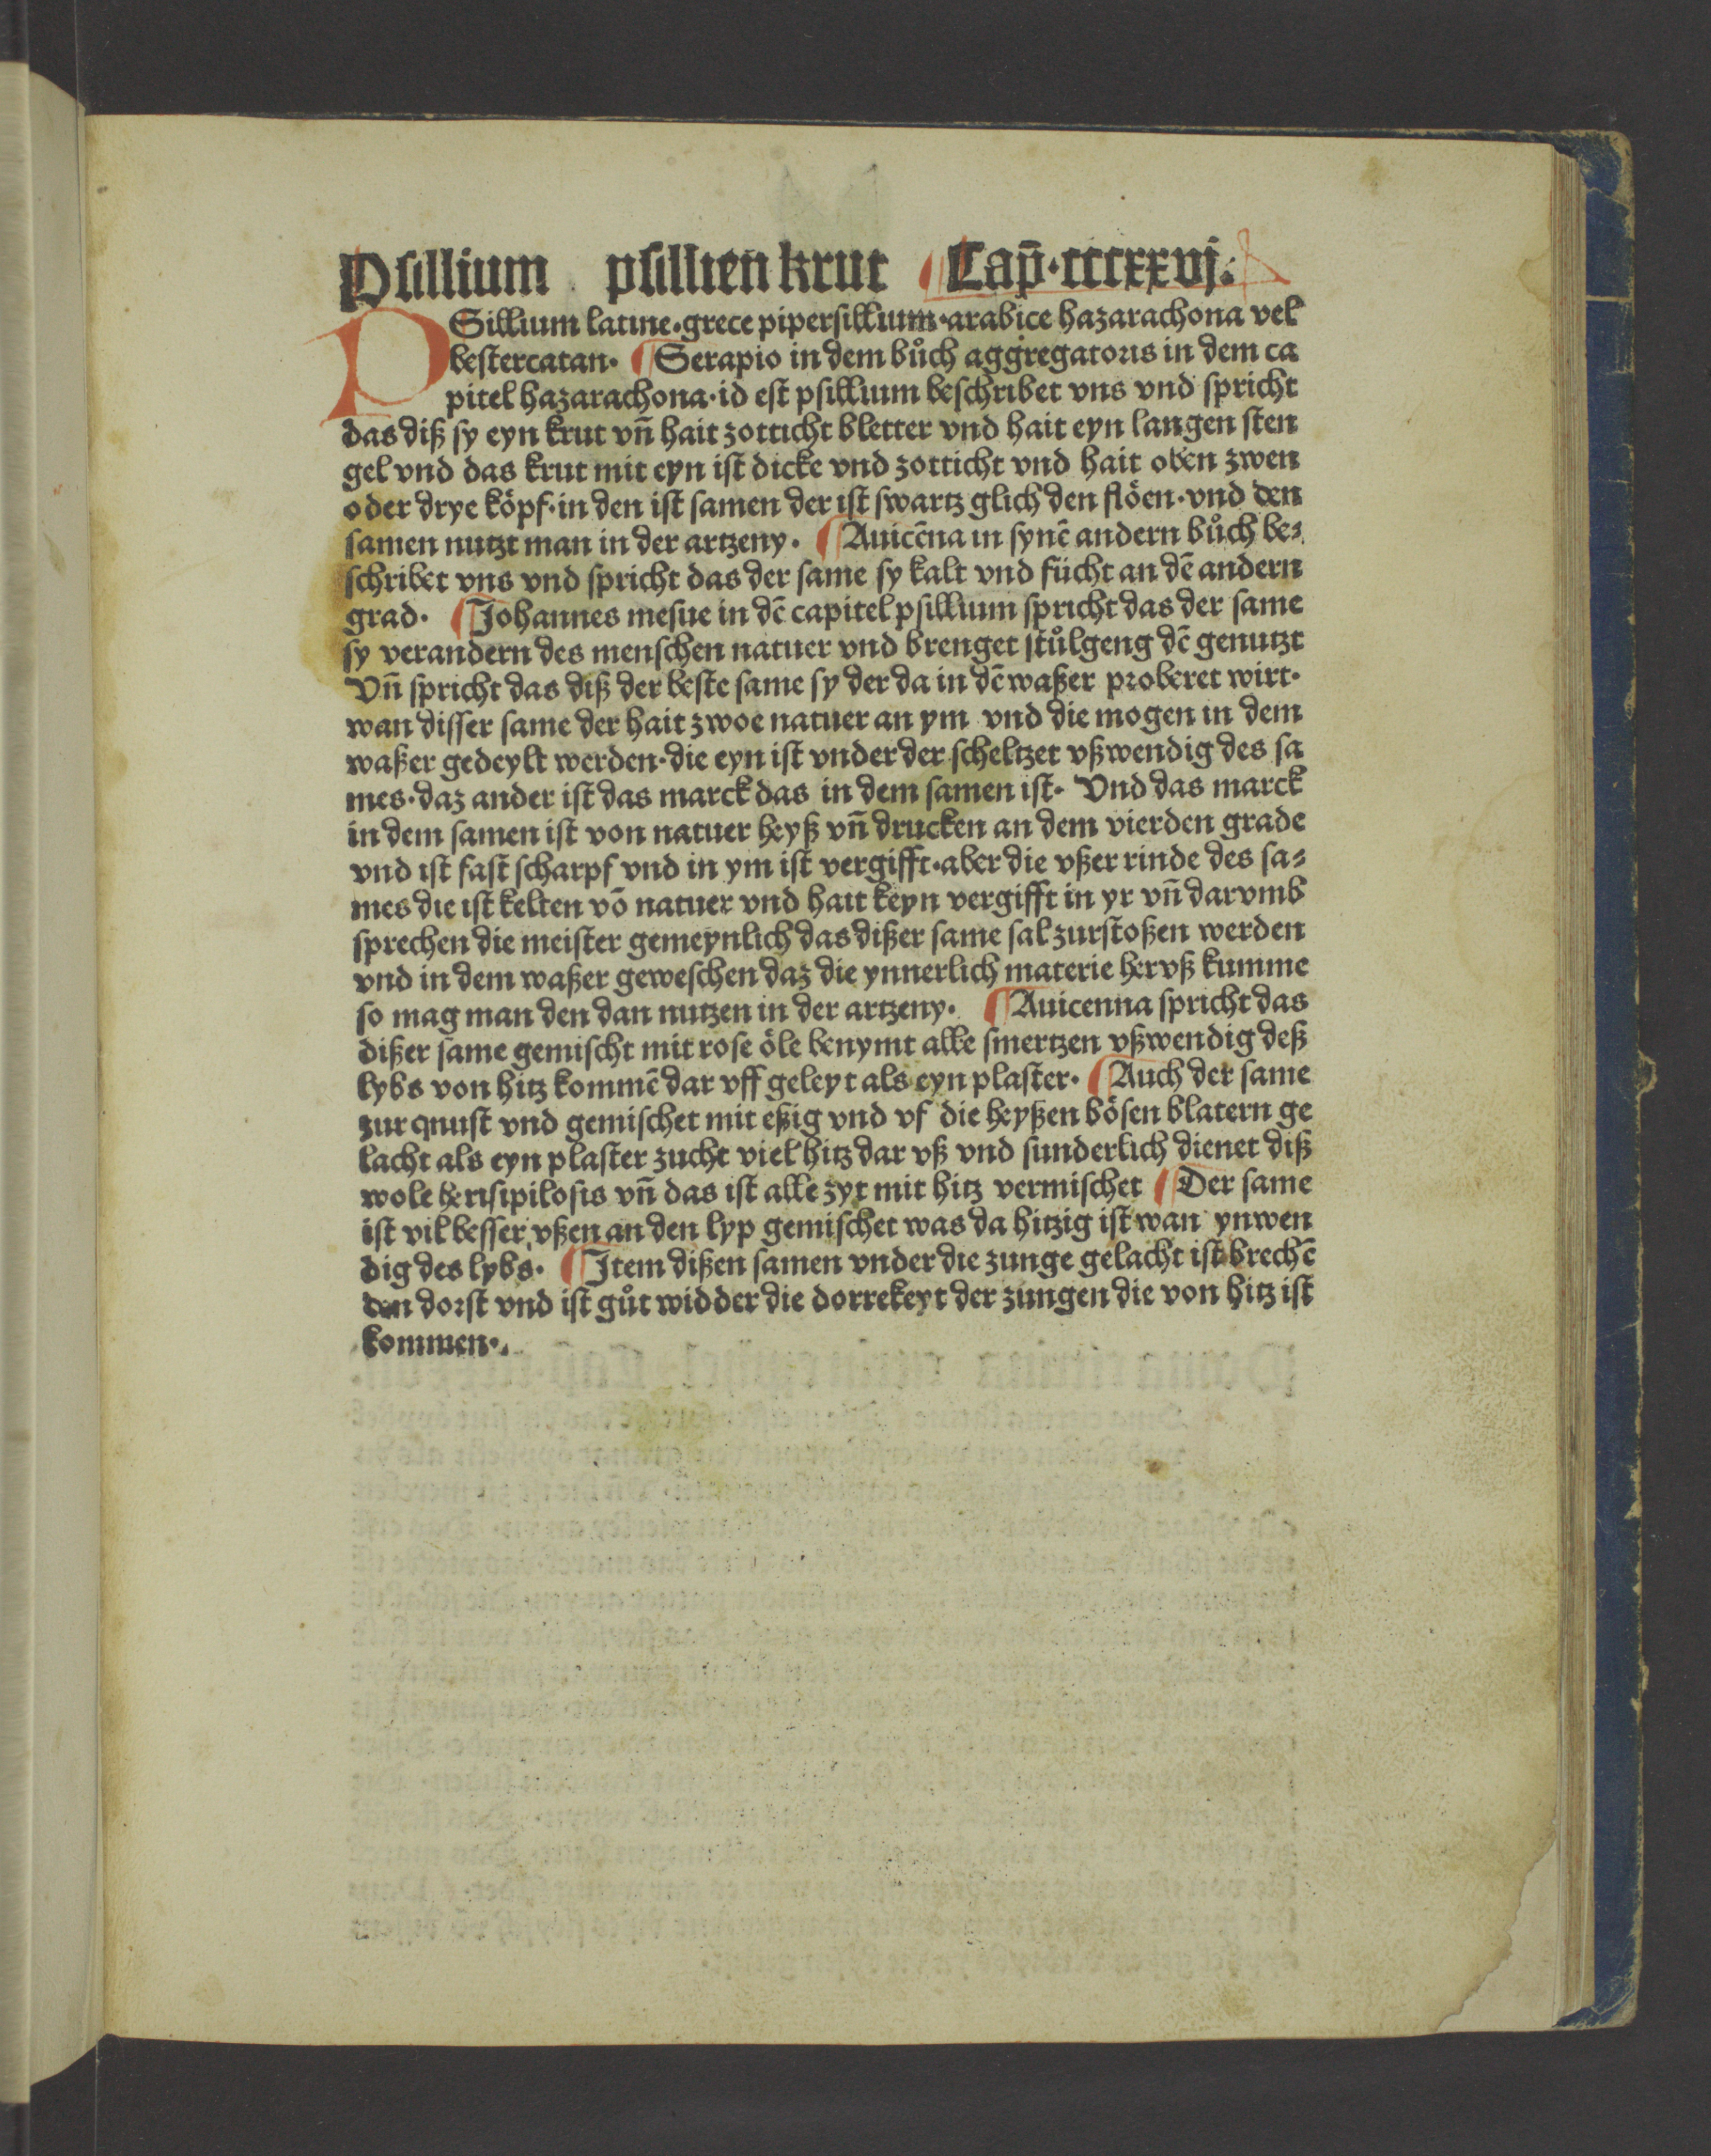 Psillium psillien krut Cap̄·cccxxvj.
PSillium latine·grece pipersillium·arabice hazarachona vel
bestercatan· ¶Serapio in dem bůch aggregatoris in dem ca
pitel hazarachona·id est psillium beschribet vns vnd spricht
das diß sy eyn krut vn̄ hait zotticht bletter vnd hait eyn langen sten
gel vnd das krut mit eyn ist dicke vnd zotticht vnd hait oben zwen
oder drye köpf·in den ist samen der ist swartz glich den flöen·vnd den
samen nutzt man in der artzeny· ¶Auicēna in synē andern bůch be⸗
schribet vns vnd spricht das der same sy kalt vnd fücht an dē andern
grad· ¶Johannes mesue in dē capitel psillium spricht das der same
sy verandern des menschen natuer vnd brenget stůlgeng dē genutzt
Vn̄ spricht das diß der beste same sy der da in dē waßer proberet wirt·
wan disser same der hait zwoe natuer an ym vnd die mogen in dem
waßer gedeylt werden·die eyn ist vnder der scheltzet vßwendig des sa
mes·daz ander ist das marck das in dem samen ist· Vnd das marck
in dem samen ist von natuer heyß vn̄ drucken an dem vierden grade
vnd ist fast scharpf vnd in ym ist vergifft·aber die vßer rinde des sa⸗
mes die ist kelten vō natuer vnd hait keyn vergifft in yr vn̄ darvmb
sprechen die meister gemeynlich das dißer same sal zurstoßen werden
vnd in dem waßer geweschen daz die ynnerlich materie hervß kumme
so mag man den dan nutzen in der artzeny· ¶Auicenna spricht das
dißer same gemischt mit rose öle benymt alle smertzen vßwendig deß
lybs von hitz kommē dar vff geleyt als eyn plaster· ¶Auch der same
zur qnust vnd gemischet mit eßig vnd vf die heyßen bösen blatern ge
lacht als eyn plaster zucht viel hitz dar vß vnd sunderlich dienet diß
wole herisipilosis vn̄ das ist alle zyt mit hitz vermischet ¶Der same
ist vil besser vßen an den lyp gemischet was da hitzig ist wan ynwen
dig des lybs· ¶Item dißen samen vnder die zunge gelacht ist brechē
den dorst vnd ist gůt widder die dorrekeyt der zungen die von hitz ist
kommen·.